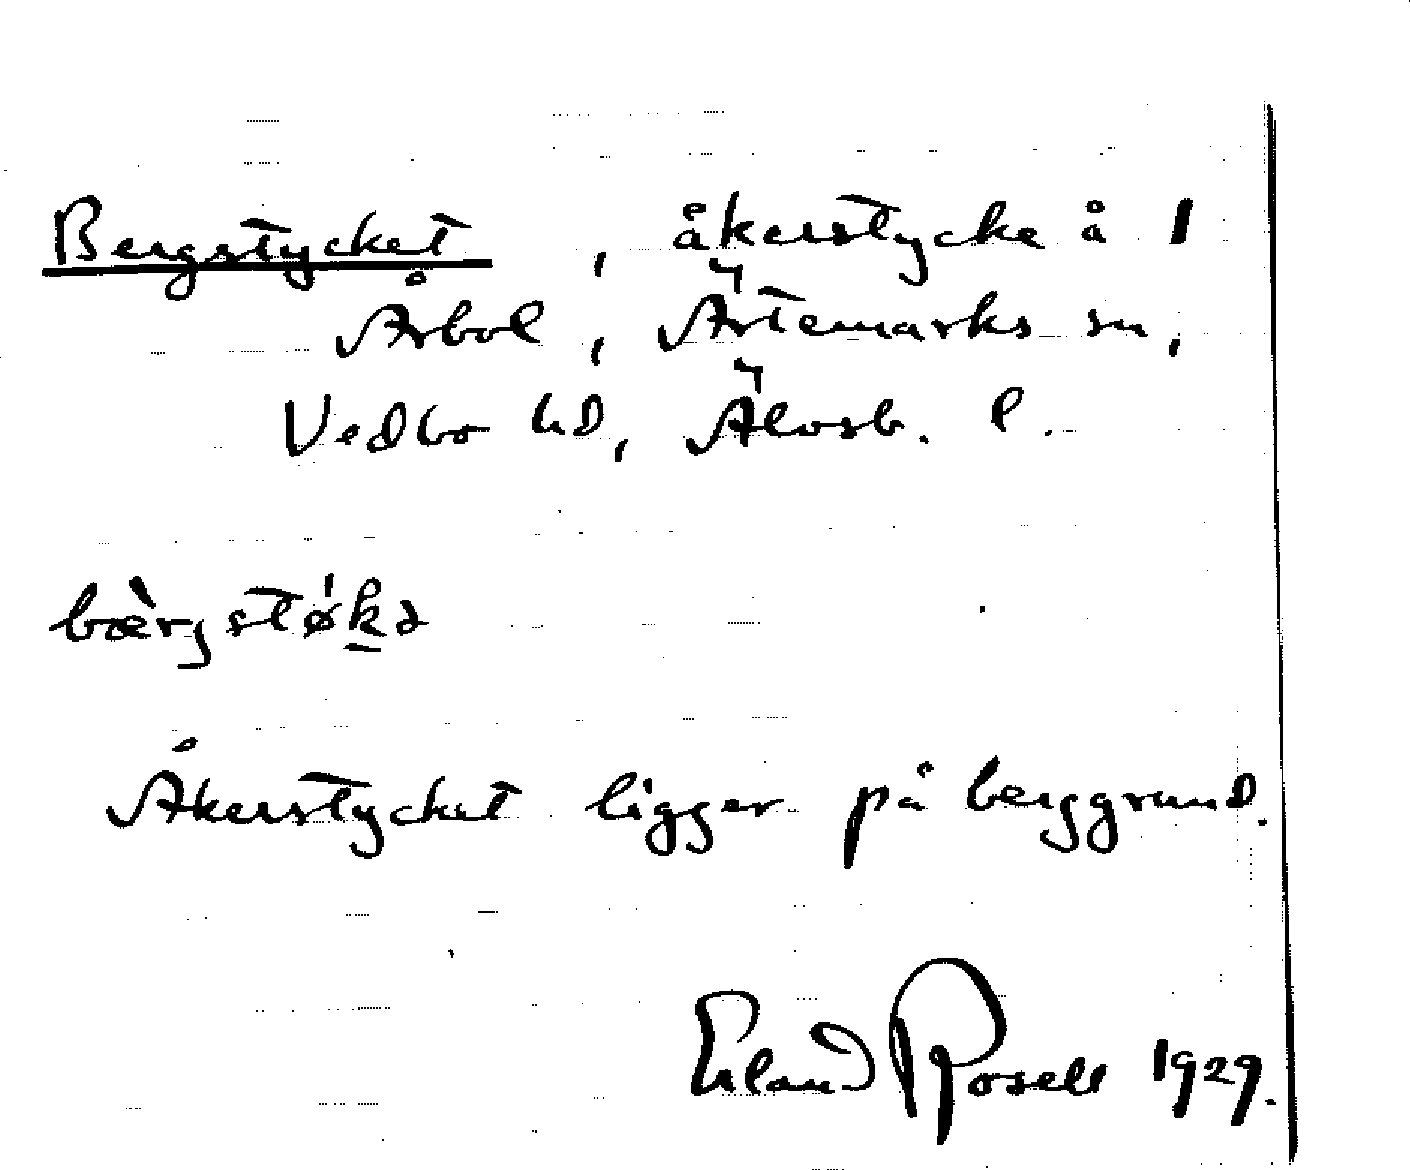 Bergstycket, åkerstycke å 1
Årbol, Ärtemarks sn,
Vedbo hd, Älvsb. l.
bæ̀rgstø̍k̲ə
Åkerstycket ligger på berggrund.
Erland Rosell 1929.